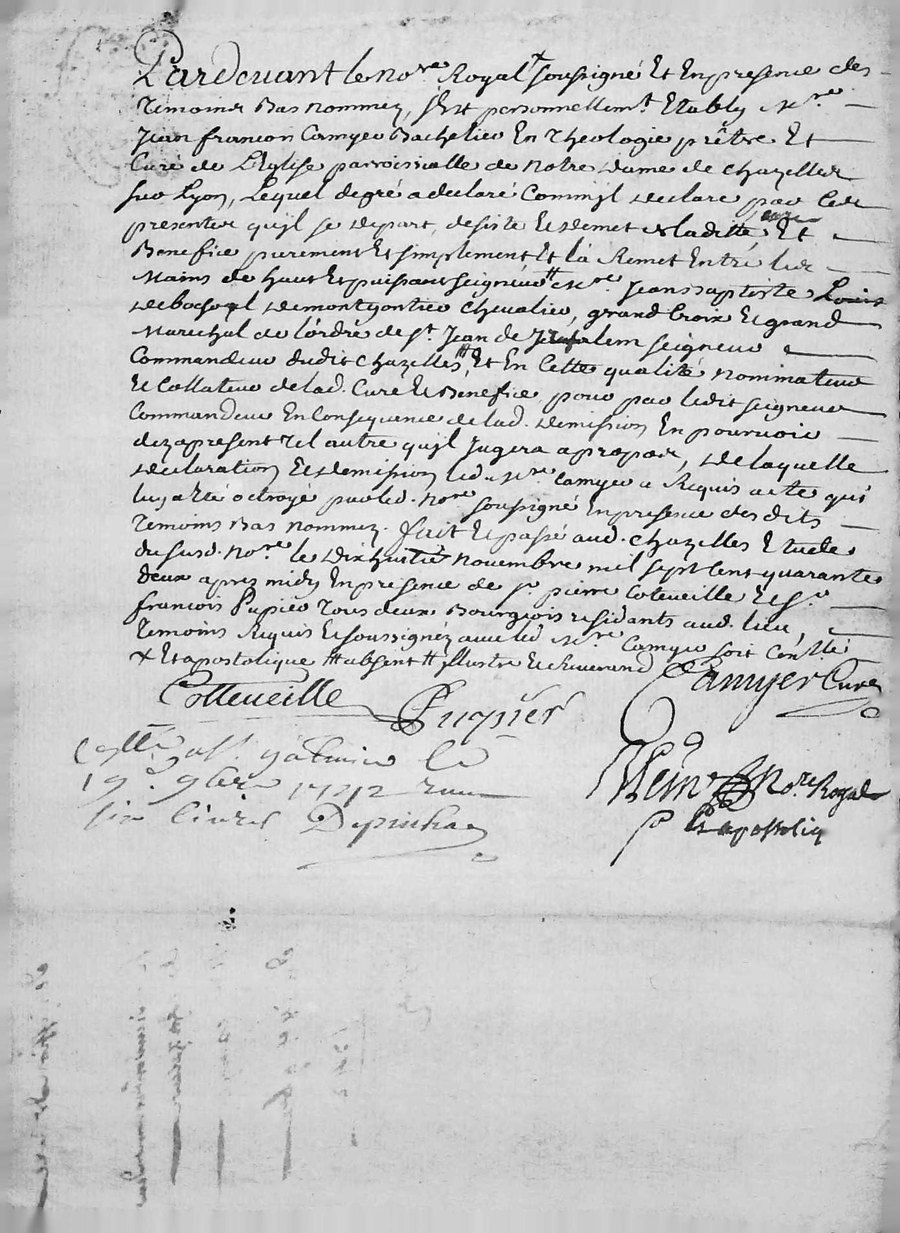 Pardevant le no.re Royal + soussigné Et En presence des
Temoins Bas nommez, s'est personnellem.t Etably M.re
Jean françon Camyer Bachelier En Theologie prêtre Et
Curé de L'Eglise parroissialle de Notre Dame de Chazelles
sur Lyon, Lequel degré a declaré Comm'jl declare par Ces
presentes qu'jl se depart, desiste Et demet de laditte cure Et
Benefice purement Et simplement Et la Remet Entre les
Mains de haut Et puissant seigneur ++ M.re Jean Baptiste Louis
de demontgontier Chevalier, grand Croix Et grand
Marechal de l'ordre de St. Jean de Jerusalem seigneur
Commandeur dudit Chazelles ++, Et En Cette qualité nominateur
Et Collateur de lad. Cure Et Benefice pour par ledit seigneur
Commandeur En Consequence de lad. demission En pourvoir
dez apresent Tel autre qu'jl Jugera apropos, de laquelle
declaration Et demission led. M.re Camyer a Requis acte qui
luy a Eté octroyé par led. no.re soussigné En presence desdits
Temoins Bas nommez. fait Et passé aud. Chazelles Etude
du susd. no.re le Dixhuitie Novembre mil sept Cent quarante
deux aprez midy En presence de s.r pierre Cotteveille Et s.r
françois Pupier Tous deux Bourgeois residants aud. lieu,
Temoins Requis Et soussignéz avec led. M.re Camyer soit Con.llé
+ Et apostolique ++ absent ++ jllustre Et Reverand
Camyer Curé
Cotteveille Pupier
no.re Royal
Et apostoliq
Con.llé a st galmier le
19.e 9bre 1742 recu
six livres